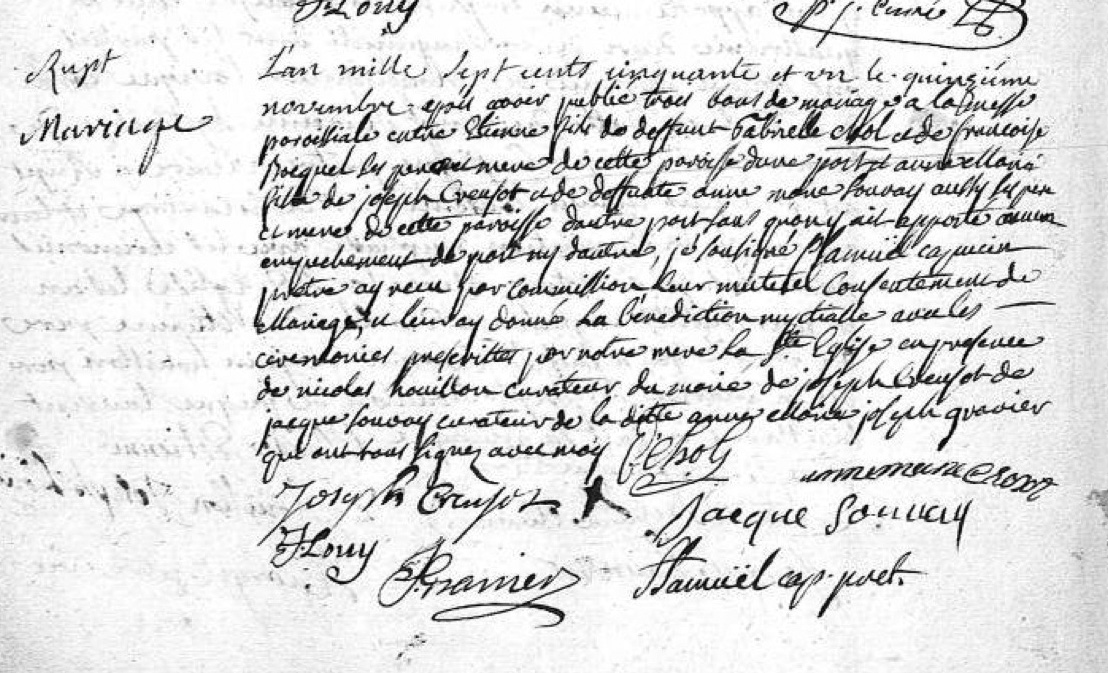 F Louy
p. j. Curé
Rupt
Mariage
L'an mille sept cents cinquante et un le quinziéme
novembre apres avoir publié trois bans de mariage a la messe
paroissiale entre Etienne fils de deffunt Gabrielle Chol et de francoise
ses pere et mere de cette paroisse dune part et anne Maria
fille de joseph Creusot et de deffunte anne marie Souvay aussy ses pere
et mere de cette paroisse dautre part sans quon y ait apporté aucun
empechement de part ny dautre, je soutigné f Samuël capucin
prêtre ay recu par Commission leur mutuel Consentement de
Mariage, et leur ay donné la bénediction nuptialle avec les
céremonies prescrittes par notre mere la Ste Eglise en presence
de nicolas houillon curateur du marié de joseph Creusot de
jacque Souvay curateur de la ditte anne Marie joseph gravier
qui ont tous signez avec moy E Choly
anne marie
Joseph Creusot
Jacque Souvay
F Louy
f Samuël cap. pret.